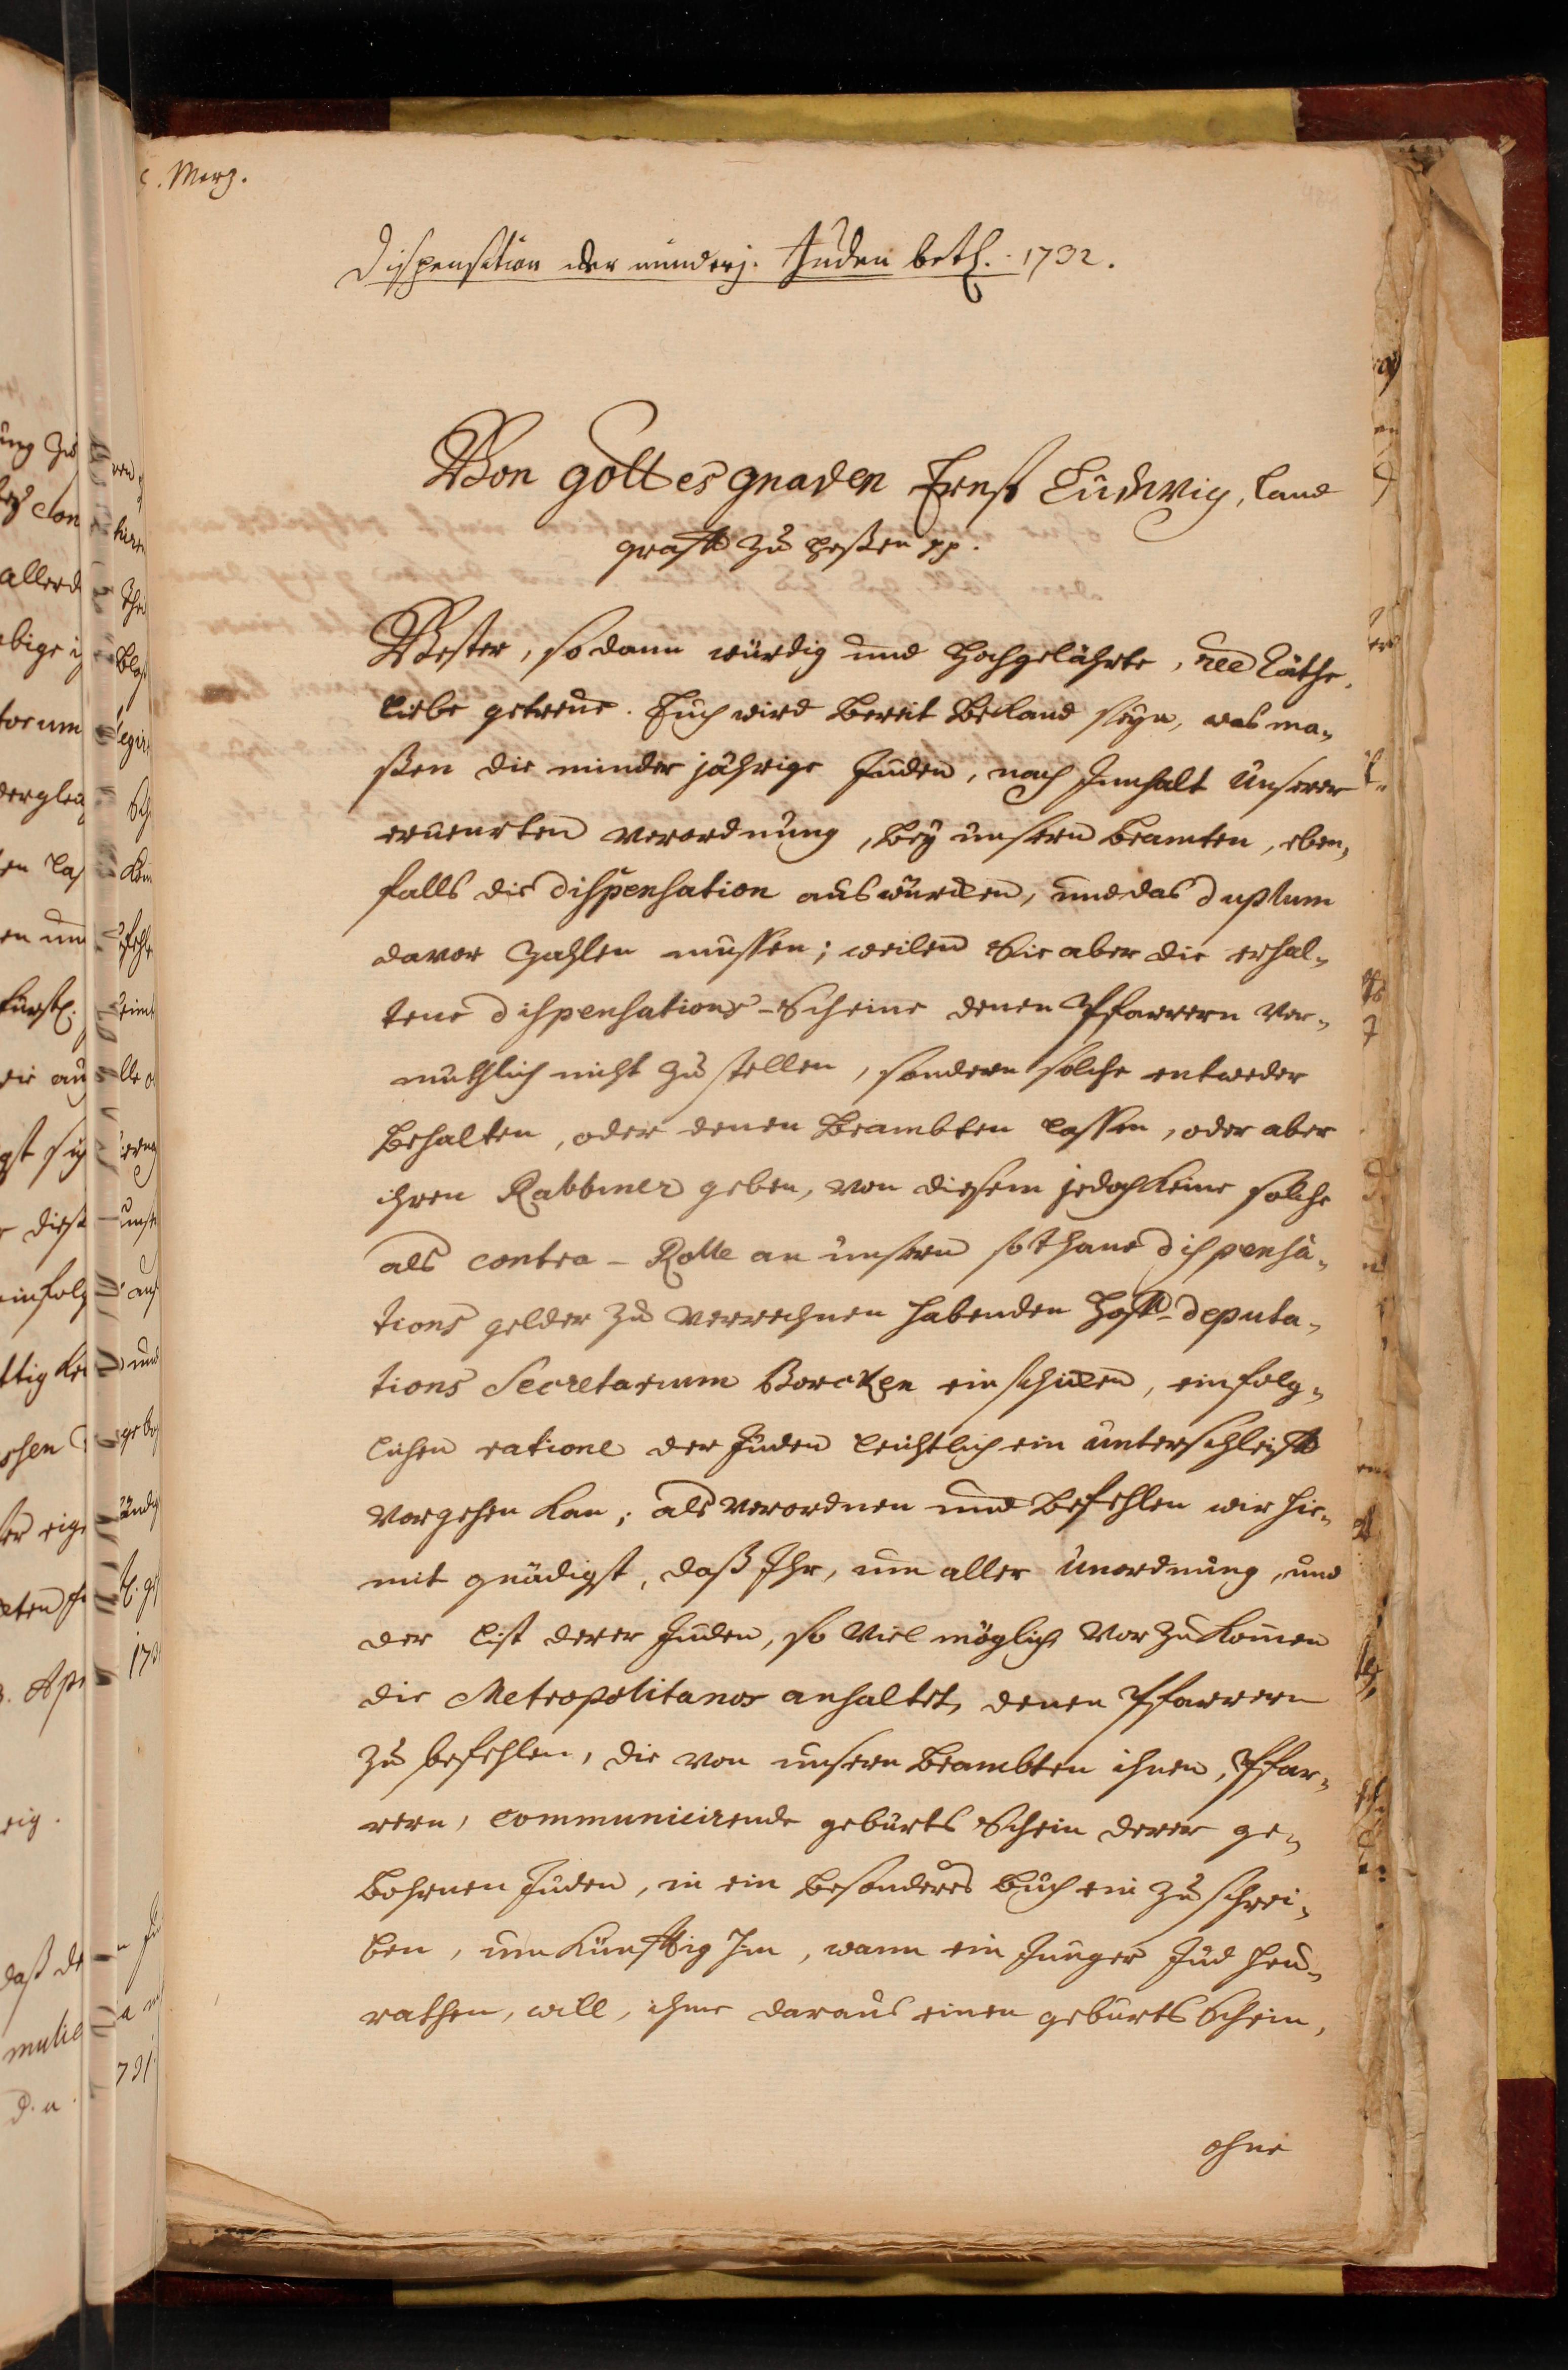 Merz.
Dispensation der minderj. Juden betr. 1732.
Von gottes gnaden Ernst Ludwig, Land
graff zu Heßen pp.
Vester, so dann würdig und Hochgelährte, Räthe,
liebe getreue. Euch wird bereit bekand seyn, was ma-
ßen die minder jährige Juden, nach Innhalt Unserer
erneuerten Verordnung, bey unsern beamten, eben-
falls die dispensation auswürcken, und das duplum
davor zahlen müssen; weilen Sie aber die erhal-
tene dispensations-Scheine denen Pfarrern ver-
muthlich nicht zu stellen, sondern solche entweder
behalten, oder denen Beambten lassen, oder aber
ihren Rabbiner geben, von diesem jedoch keine solche
als contra-Rolle an unsern sothane dispensa-
tions gelder zu verrechnen habenden Hoff-deputa-
tions Secretarium Borcken einschicken, einfolg-
lichen ratione der Juden leichtlich ein unterschleiff
vorgehen kan; als verordnen und befehlen wir hie-
mit gnädigst, daß Ihr, um aller unordnung, und
der list derer Juden, so viel möglich vor zu komen
die Metropolitanos anhaltet, denen Pfarrern
zu befehlen, die von unsern Beambten ihnen, Pfar-
rern, communicirende geburts Schein derer ge-
bohrnen Juden, in ein besonderes buch ein zu schrei-
ben, um künfftig hin, wann ein Junger Jud heu-
rathen, will, ihme daraus einen geburts Schein,
ohne